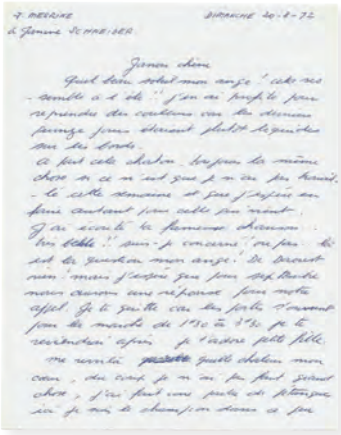 J. MESRINE DIMANCHE 20-8-72
à Janine SCHNEIDER
Janou chérie
Quel beau soleil mon ange ! cela res
- semble à l'été !! j'en ai profité pour
reprendre des couleurs car les derniers
quinze jours étaient plutôt liquides
sur les bords.
A part cela chaton toujours la même
chose si ce n'est que je n'ai pas travail
- lé cette semaine et que j'espère en
faire autant pour celle qui vient.
J'ai écouté la fameuse chanson
très belle !! suis-je concerné ou pas là
est la question mon ange !
mais j'espère que pour septembre
nous aurons une réponse pour notre
appel. Je te quitte car les portes s'ouvrent
pour la marche de 1h30 à 3h30 je te
reviendrai après je t'adore petite fille
me revoilà quelle chaleur mon
cœur, du coup je n'ai pas fait grand
chose, j'ai fait une partie de pétanque
ici je suis le champion dans ce jeu